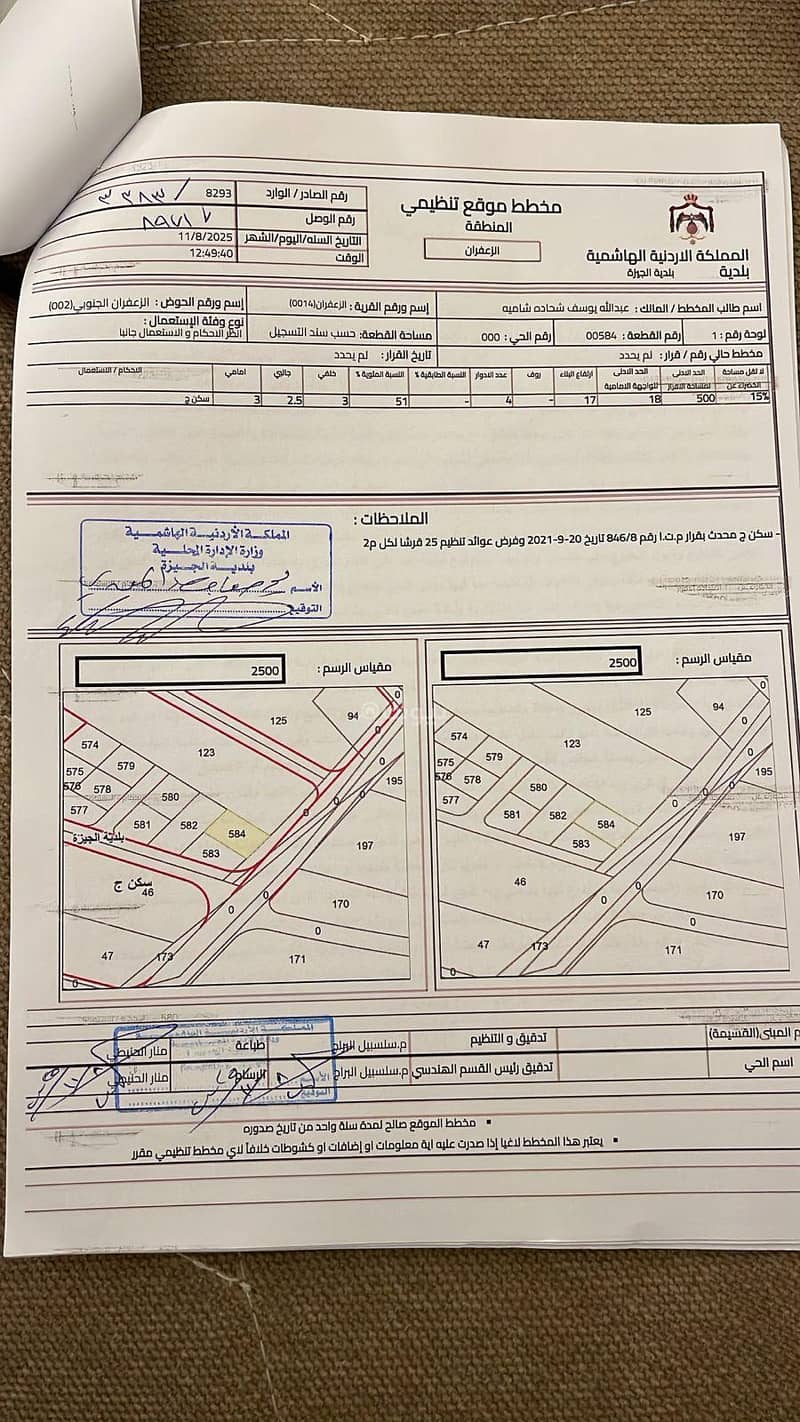 المملكة الاردنية الهاشمية
بلدية بلدية الجيزة
مخطط موقع تنظيمي
المنطقة
الزعفران
رقم الصادر / الوارد 8293 /
رقم الوصل
التاريخ السنه/اليوم/الشهر 11/8/2025
الوقت 12:49:40
اسم طالب المخطط / المالك : عبدالله يوسف شحاده شاميه
إسم ورقم القرية : الزعفران(0014)
إسم ورقم الحوض : الزعفران الجنوبي(002)
لوحة رقم : 1 رقم القطعة : 00584 رقم الحي : 000 مساحة القطعة: حسب سند التسجيل
نوع وفئة الإستعمال : انظر الاحكام و الاستعمال جانبا
مخطط حالي رقم / قرار : لم يحدد تاريخ القرار : لم يحدد
لا تقل مساحة الحد الادنى لمساحة الافراز الحد الادنى للواجهة الامامية ارتفاع البناء روف عدد الادوار النسبة الطابقية % النسبة المئوية % خلفي جانبي امامي الاحكام / الاستعمال
15% 500 18 17 - 4 - 51 3 2.5 3 سكن ج
الملاحظات :
- سكن ج محدث بقرار م.ت.ا رقم 846/8 تاريخ 20-9-2021 وفرض عوائد تنظيم 25 قرشا لكل م2
المملكة الأردنية الهاشمية
وزارة الإدارة المحلية
بلدية الجيزة
الأسم
التوقيع
مقياس الرسم : 2500
125
94
123
574
579
575
576
578
580
577
581
582
584
583
195
197
46
170
47
173
171
0
مقياس الرسم : 2500
125
94
123
574
579
575
576
578
580
577
581
582
584
583
بلدية الجيزة
سكن ج
46
195
197
170
47
173
171
0
م المبنى(القسيمة) تدقيق و التنظيم م.سلسبيل البراج طباعة منار الحنيطي
اسم الحي تدقيق رئيس القسم الهندسي م.سلسبيل البراج الرسام منار الحنيطي
▪ مخطط الموقع صالح لمدة سنة واحد من تاريخ صدوره
▪ يعتبر هذا المخطط لاغيا إذا صدرت عليه اية معلومات او إضافات او كشوطات خلافاً لاي مخطط تنظيمي مقرر